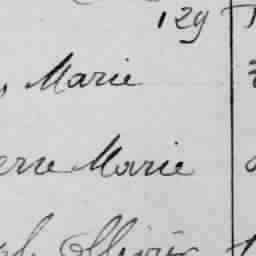 129
, Marie
erre Marie
ph Ollivier